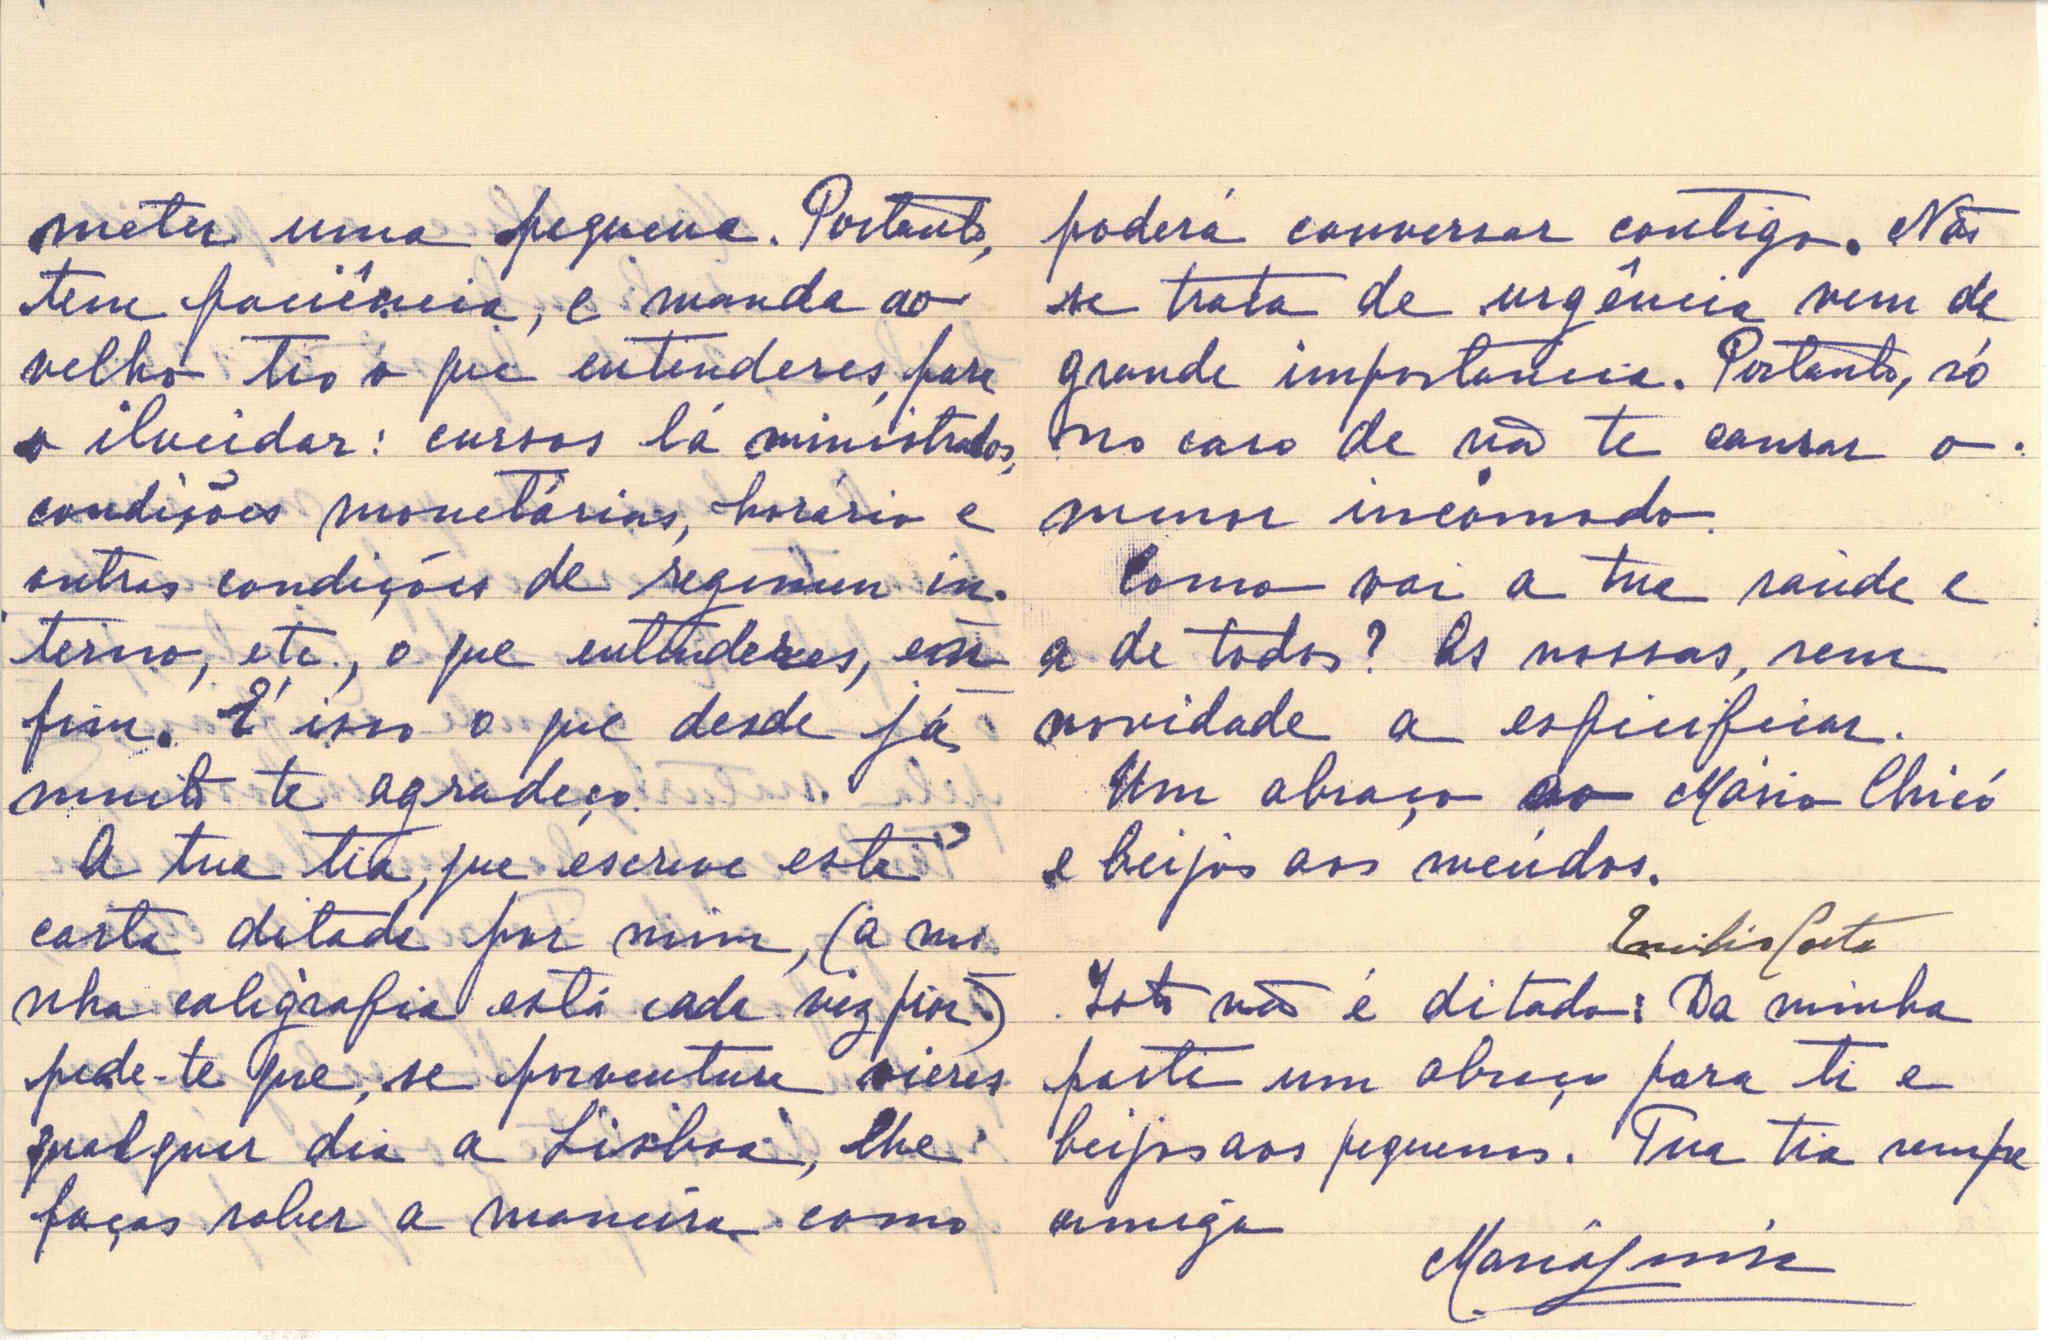 meter uma pequena. Portanto,
tem paciência, e manda ao
velho tio o que entenderes, para
o ilucidar: cursos lá ministrados,
condições monetárias, horário e
outras condições de regimen in-
terno, etc., o que entenderes, em
fim. É isso o que desde já
muito te agradeço.
A tua tia, que escreve esta
carta ditada por mim, (a mi
nha caligrafia está cada vez pior)
pede-te que, se porventura vieres
qualquer dia a Lisboa, lhe
faças saber a maneira como
poderá conversar contigo. Não
se trata de urgência nem de
grande importancia. Portanto, só
no caso de não te causar o
menor incómodo.
Como vai a tua saúde e
a de todos? As nossas, sem
novidade a espicificar.
Um abraço ao Mário Chicó
e beijos aos meúdos.
Emilio Costa
Isto não é ditado: Da minha
parte um abraço para ti e
beijos aos pequenos. Tua tia sempre
amiga
Maria Luisa